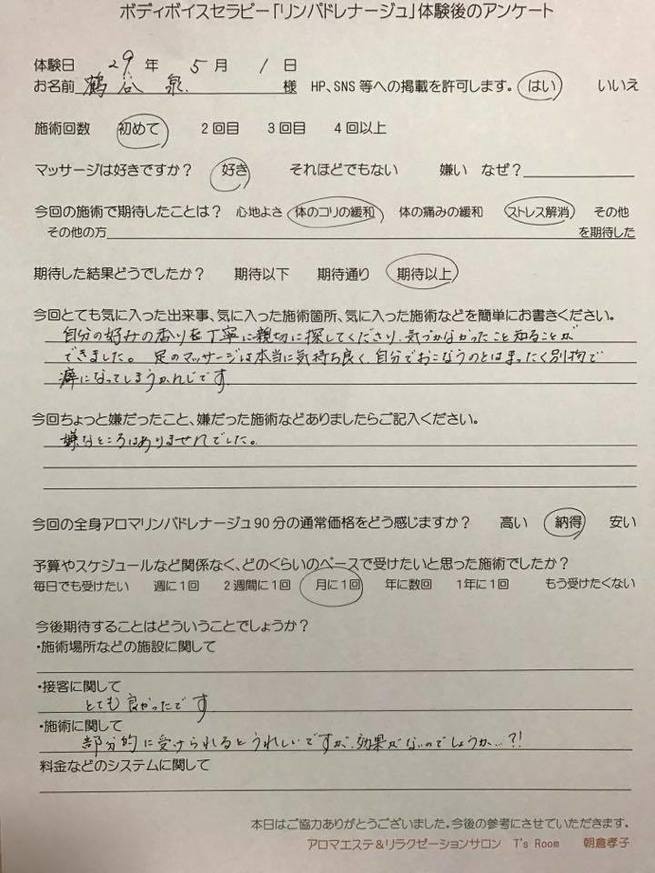 ボディボイスセラピー「リンパドレナージュ」体験後のアンケート
体験日 29 年 5 月 1 日
お名前 鶴谷 泉 様 HP、SNS 等への掲載を許可します。 はい いいえ
施術回数 初めて 2回目 3回目 4回以上
マッサージは好きですか? 好き それほどでもない 嫌い なぜ?
今回の施術で期待したことは? 心地よさ 体のコリの緩和 体の痛みの緩和 ストレス解消 その他
その他の方 を期待した
期待した結果どうでしたか? 期待以下 期待通り 期待以上
今回とても気に入った出来事、気に入った施術箇所、気に入った施術などを簡単にお書きください。
自分の好みの香りを丁寧に親切に探してくださり、気づかなかったこと知ることが
できました。 足のマッサージは本当に気持ち良く、自分でおこなうのとはまったく別物で
癖になってしまうかんじです
今回ちょっと嫌だったこと、嫌だった施術などありましたらご記入ください。
嫌なところはありませんでした。
今回の全身アロマリンパドレナージュ90分の通常価格をどう感じますか? 高い 納得 安い
予算やスケジュールなど関係なく、どのくらいのペースで受けたいと思った施術でしたか?
毎日でも受けたい 週に1回 2週間に1回 月に1回 年に数回 1年に1回 もう受けたくない
今後期待することはどういうことでしょうか?
・施術場所などの施設に関して
・接客に関して
とても良かったです
・施術に関して
部分的に受けられるとうれしいですが、効果がないのでしょうか…?!
料金などのシステムに関して
本日はご協力ありがとうございました。今後の参考にさせていただきます。
アロマエステ&リラクゼーションサロン T's Room 朝倉孝子